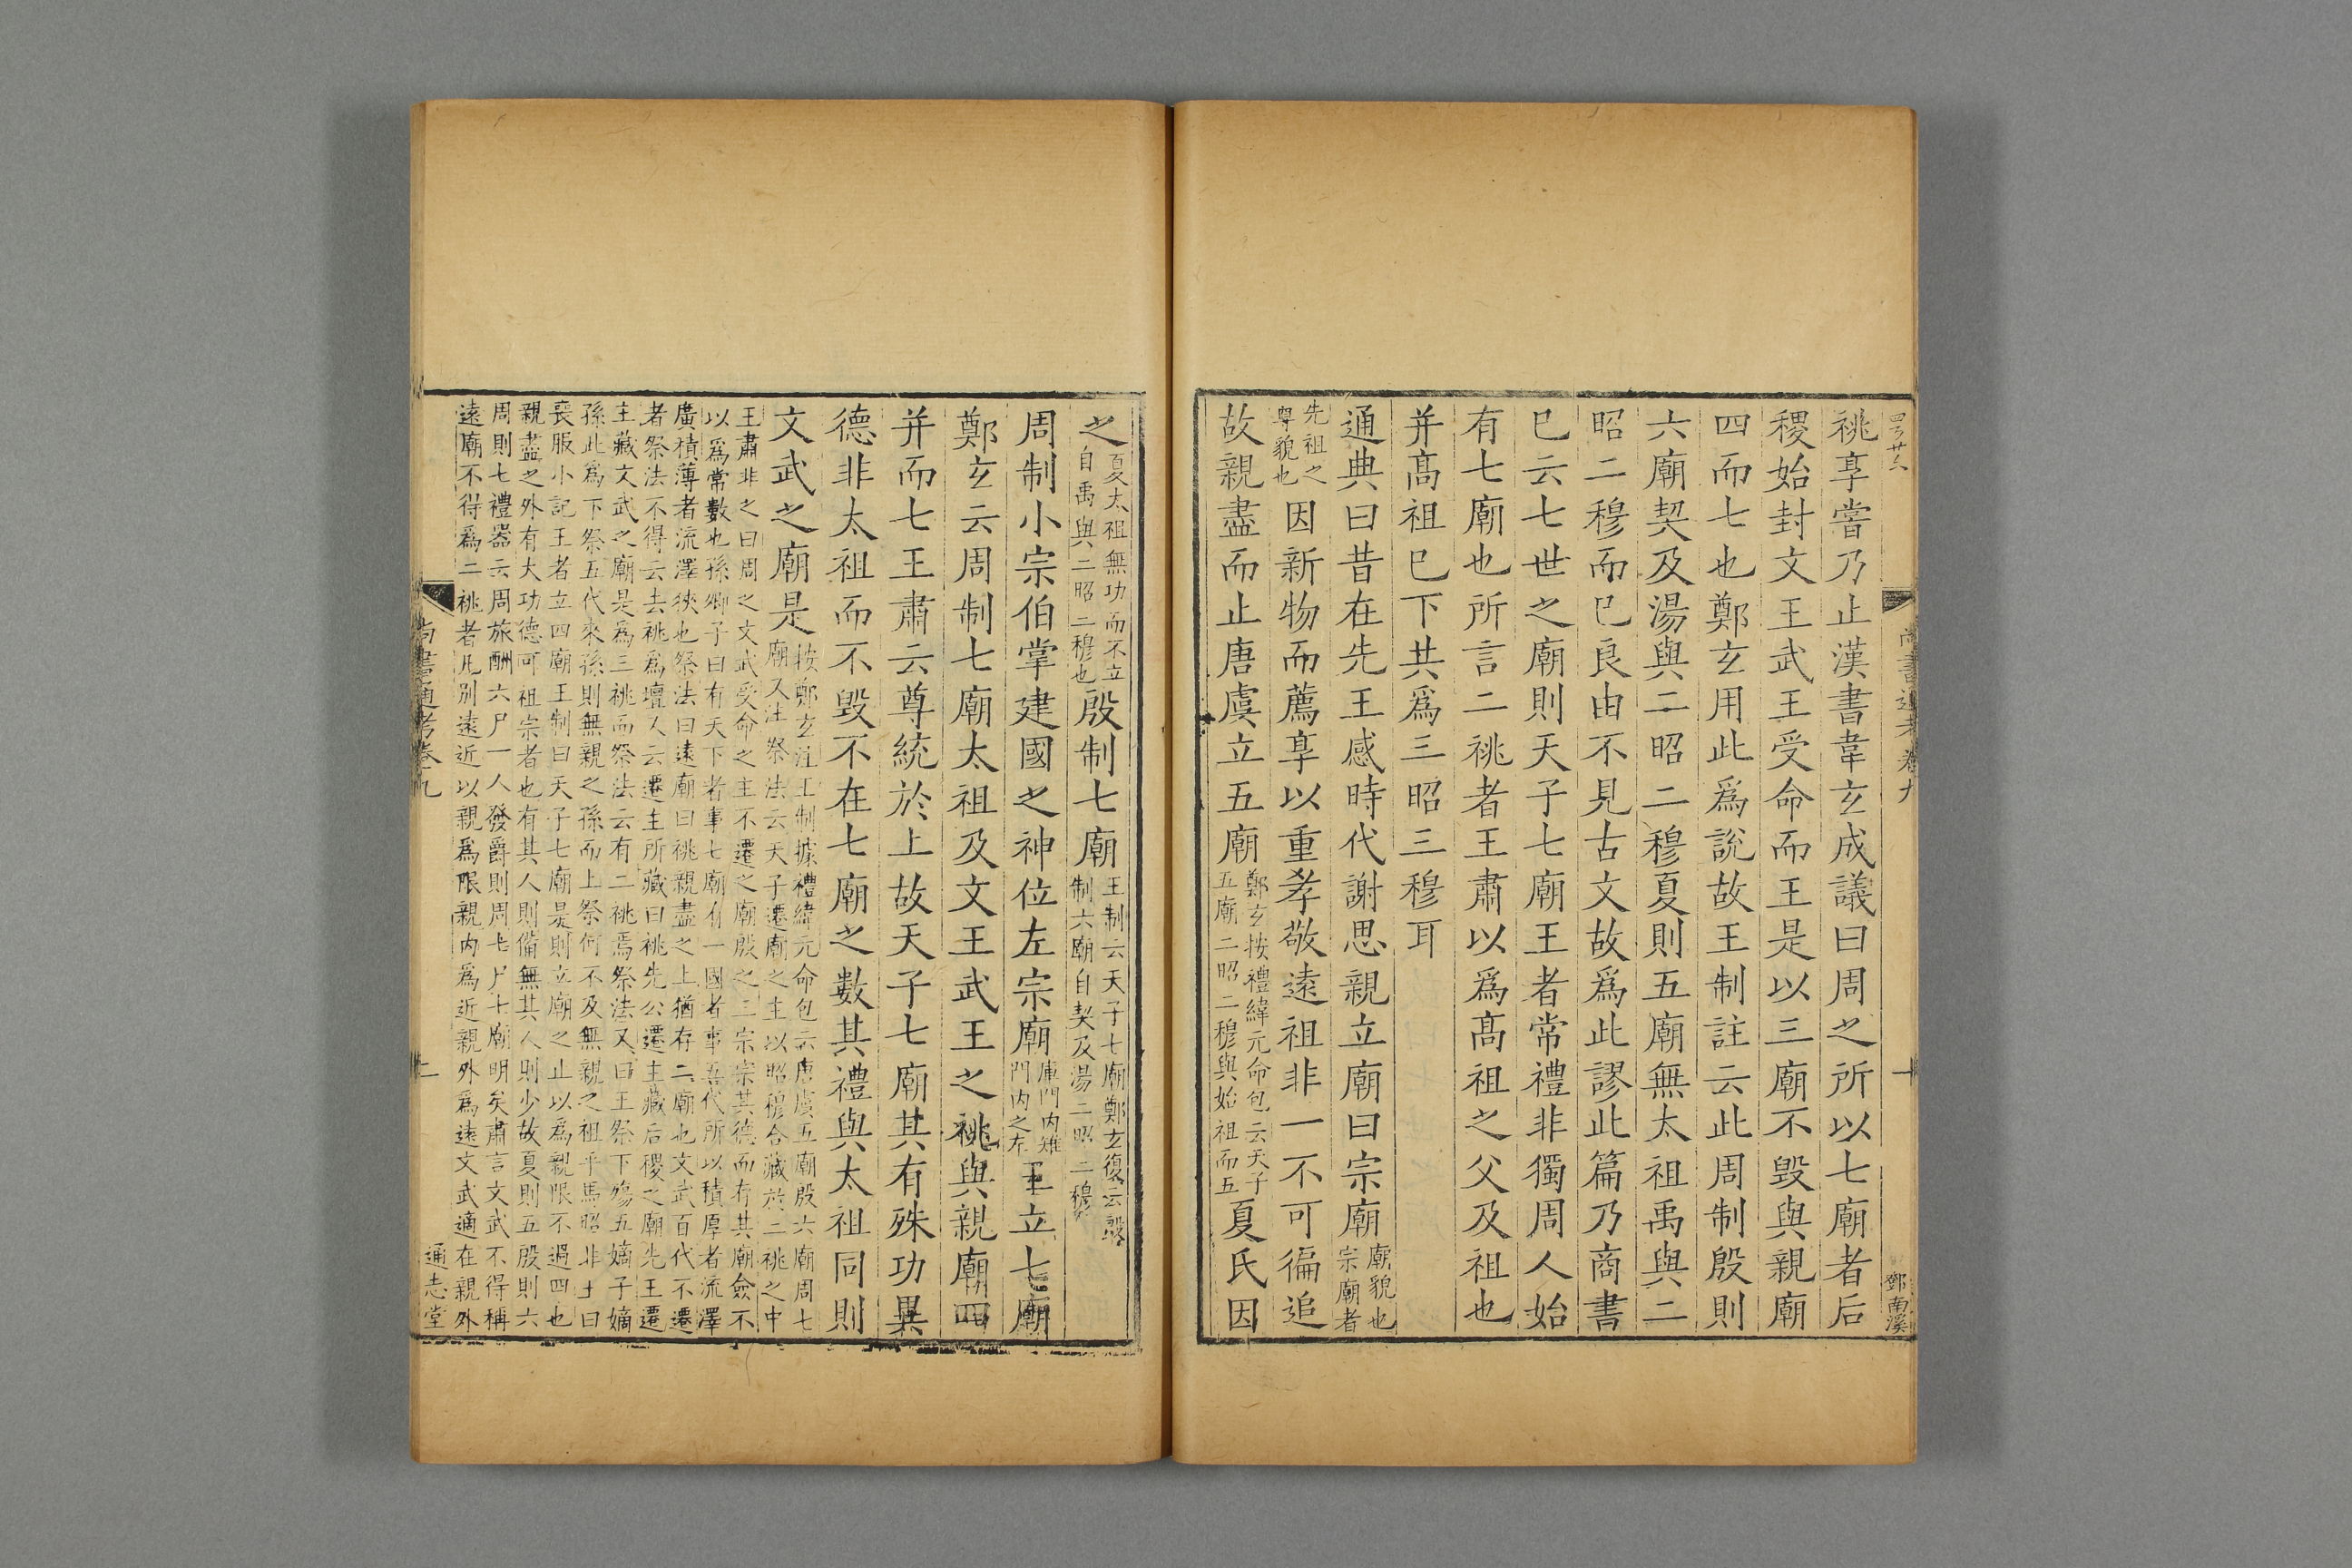 祧享嘗乃止漢書韋玄成議曰周之所以七廟者后
稷始封文王武王受命而王是以三廟不毀與親廟
四而七也鄭玄用此爲說故王制註云此周制殷則
六廟契及湯與二昭二穆夏則五廟無太祖禹與二
昭二穆而已良由不見古文故爲此謬此篇乃商書
已云七世之廟則天子七廟王者常禮非獨周人始
有七廟也所言二祧者王肅以爲高祖之父及祖也
并高祖已下共爲三昭三穆耳
通典曰昔在先王感時代謝思親立廟曰宗廟廟貌也宗廟者
先祖之尊貌也因新物而薦享以重孝敬遠祖非一不可徧追
故親盡而止唐虞立五廟鄭玄按禮緯元命包云天子五廟二昭二穆與始祖而五夏氏因
之夏太祖無功而不立自禹與二昭二穆也殷制七廟王制云天子七廟鄭玄復云殷制六廟自契及湯二昭二穆
周制小宗伯掌建國之神位左宗廟庫門内雉門内之左王立七廟
鄭玄云周制七廟太祖及文王武王之祧與親廟四
并而七王肅云尊統於上故天子七廟其有殊功異
德非太祖而不毀不在七廟之數其禮與太祖同則
文武之廟是按鄭玄注王制據禮緯元命包云唐虞五廟殷六廟周七廟又注祭法云天子遷廟之主以昭穆合藏於二祧之中
王肅非之曰周之文武受命之主不遷之廟殷之三宗宗其德而存其廟僉不
以爲常數也孫卿子曰有天下者事七廟有一國者事五代所以積厚者流澤
廣積薄者流澤狹也祭法曰遠廟曰祧親盡之上猶存二廟也文武百代不遷
者祭法不得云去祧爲壇又云遷主所藏曰祧先公遷主藏后稷之廟先王遷
主藏文武之廟是爲三祧而祭法云有二祧焉祭法又曰王祭下殤五嫡子嫡
孫此爲下祭五代來孫則無親之孫而上祭何不及無親之祖乎馬昭非王曰
喪服小記王者立四廟王制曰天子七廟是則立廟之止以爲親限不過四也
親盡之外有大功德可祖宗者也有其人則備無其人則少故夏則五殷則六
周則七禮器云周旅酬六尸一人發爵則周七尸七廟明矣肅言文武不得稱
遠廟不得爲二祧者凡別遠近以親爲限親内爲近親外爲遠文武適在親外
尚書通考卷九
通志堂
鄧南溪